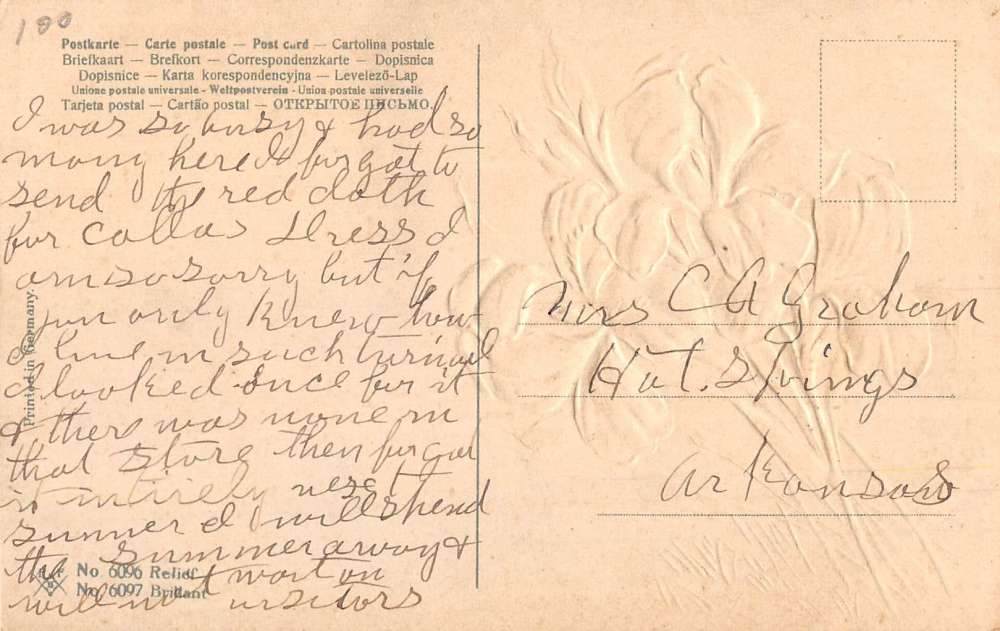 100
Postkarte — Carte postale — Post card — Cartolina postale
Briefkaart — Brefkort — Correspondenzkarte — Dopisnica
Dopisnice — Karta korespondencyjna — Levelező-Lap
Unione postale universale - Weltpostverein - Union postale universelle
Tarjeta postal — Cartão postal — ОТКРЫТОЕ ПИСЬМО.
I was so busy & had so
many here I forgot to
send the red cloth
for Callas Dress I
am so sorry but if
you only knew how
I live in such turmoil
I looked once for it
& there was none in
that store then forgot
it entirely next
summer I will spend
the summer away &
will not wait on
visitors
Printed in Germany.
No. 6096 Relief
No. 6097 Brillant
Mrs C A Graham
Hot. Springs
Arkansas